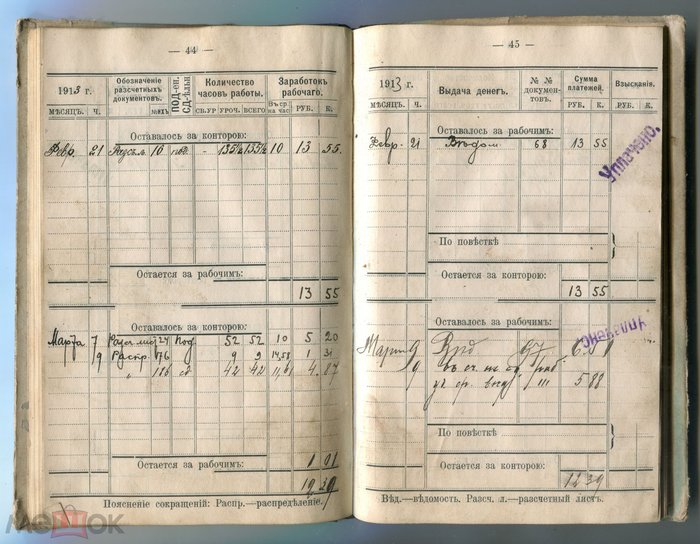 — 44 —
1913 г.
Обозначеніе разсчетныхъ документовъ.
ПОД-ОИ. СД-ѢЛЬН
Количество часовъ работы.
Заработокъ рабочаго.
МѢСЯЦЪ. Ч. №№ СВ.УР УРОЧ. ВСЕГО Въ ср. на час РУБ. К.
Оставалось за конторою:
Февр. 21 10 135½ 135½ 10 13 55
Остается за рабочимъ:
13 55
Оставалось за конторою:
Марта 7 24 Под. 52 52 10 5 20
9 Распр. 176 9 9 14,58 1 31
" 186 42 42 11,61 4 87
Остается за рабочимъ:
Поясненіе сокращеній: Распр.—распредѣленіе.
— 45 —
1913 г.
Выдача денегъ.
№ № документовъ.
Сумма платежей.
Взысканія.
МѢСЯЦЪ. Ч. РУБ. К. РУБ. К.
Оставалось за рабочимъ:
Февр. 21 Вѣдом. 68 13 55
Уплачено.
По повѣсткѣ
Остается за конторою:
13 55
Оставалось за рабочимъ:
Уплачено
Март 9
9 5 88
По повѣсткѣ
Остается за конторою:
12 39
Вѣд.—вѣдомость. Разсч. л.—разсчетный листъ.
мешок